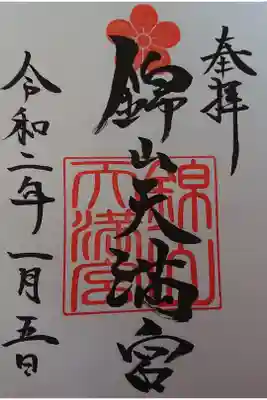 奉拝
錦山天満宮
錦山天満宮
令和二年一月五日